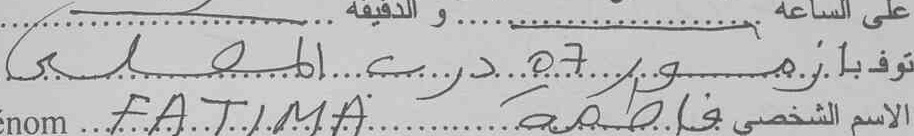 على الساعة ............ و الدقيقة ............
توفي با زمور 07 درب
énom ... FATIMA ... فاطمة الاسم الشخصي